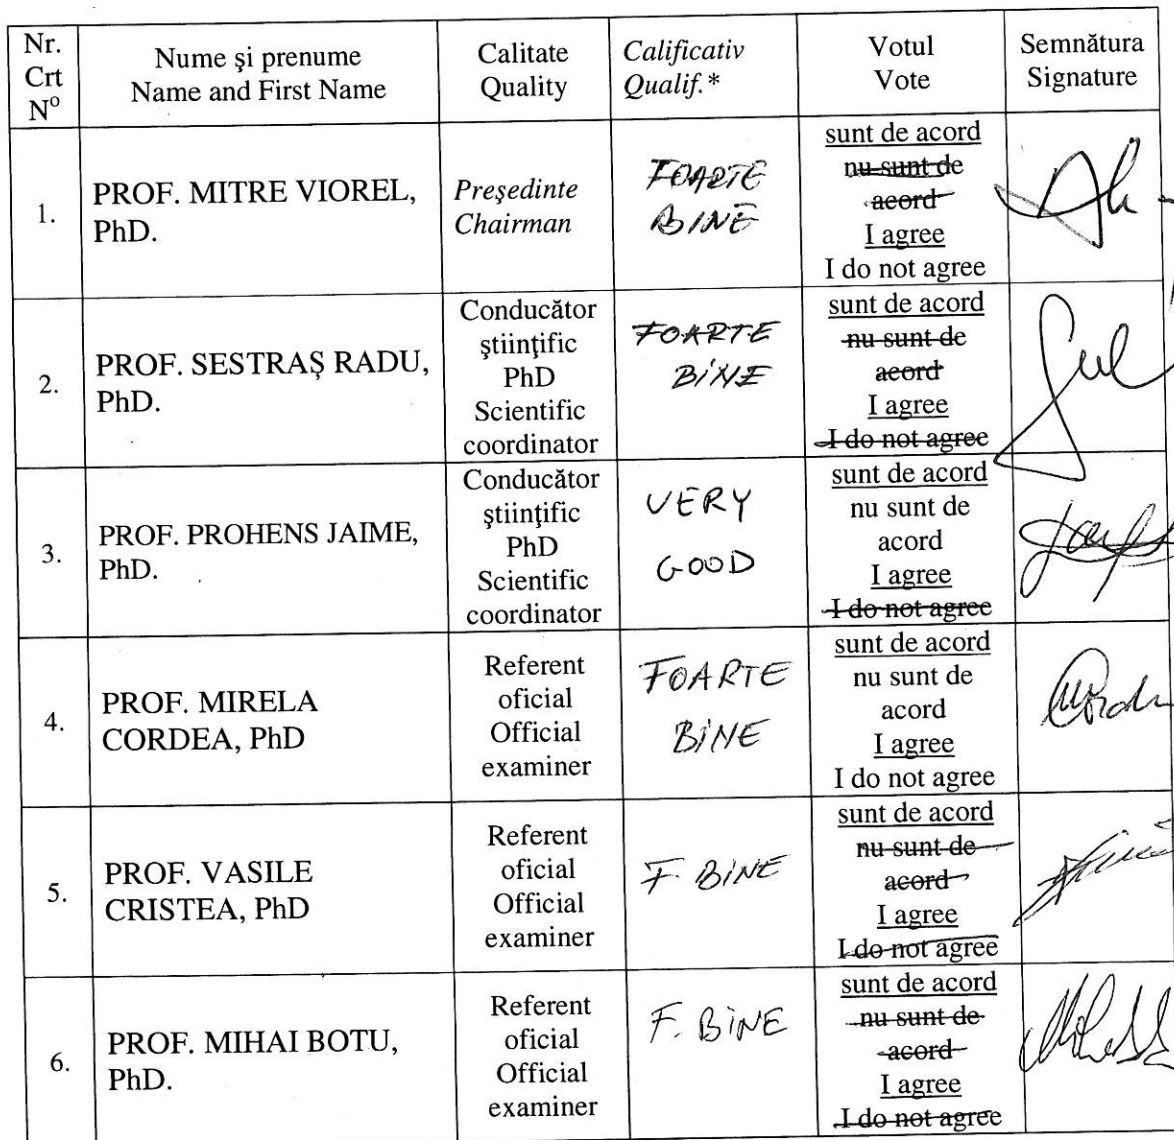 Nr.
Crt
Nº
Nume şi prenume
Name and First Name
Calitate
Quality
Calificativ
Qualif.*
Votul
Vote
Semnătura
Signature
1.
PROF. MITRE VIOREL,
PhD.
Preşedinte
Chairman
FOARTE
BINE
sunt de acord
nu sunt de
acord
I agree
I do not agree
2.
PROF. SESTRAŞ RADU,
PhD.
Conducător
ştiinţific
PhD
Scientific
coordinator
FOARTE
BINE
sunt de acord
nu sunt de
acord
I agree
I do not agree
3.
PROF. PROHENS JAIME,
PhD.
Conducător
ştiinţific
PhD
Scientific
coordinator
VERY
GOOD
sunt de acord
nu sunt de
acord
I agree
I do not agree
4.
PROF. MIRELA
CORDEA, PhD
Referent
oficial
Official
examiner
FOARTE
BINE
sunt de acord
nu sunt de
acord
I agree
I do not agree
5.
PROF. VASILE
CRISTEA, PhD
Referent
oficial
Official
examiner
F. BINE
sunt de acord
nu sunt de
acord
I agree
I do not agree
6.
PROF. MIHAI BOTU,
PhD.
Referent
oficial
Official
examiner
F. BINE
sunt de acord
nu sunt de
acord
I agree
I do not agree